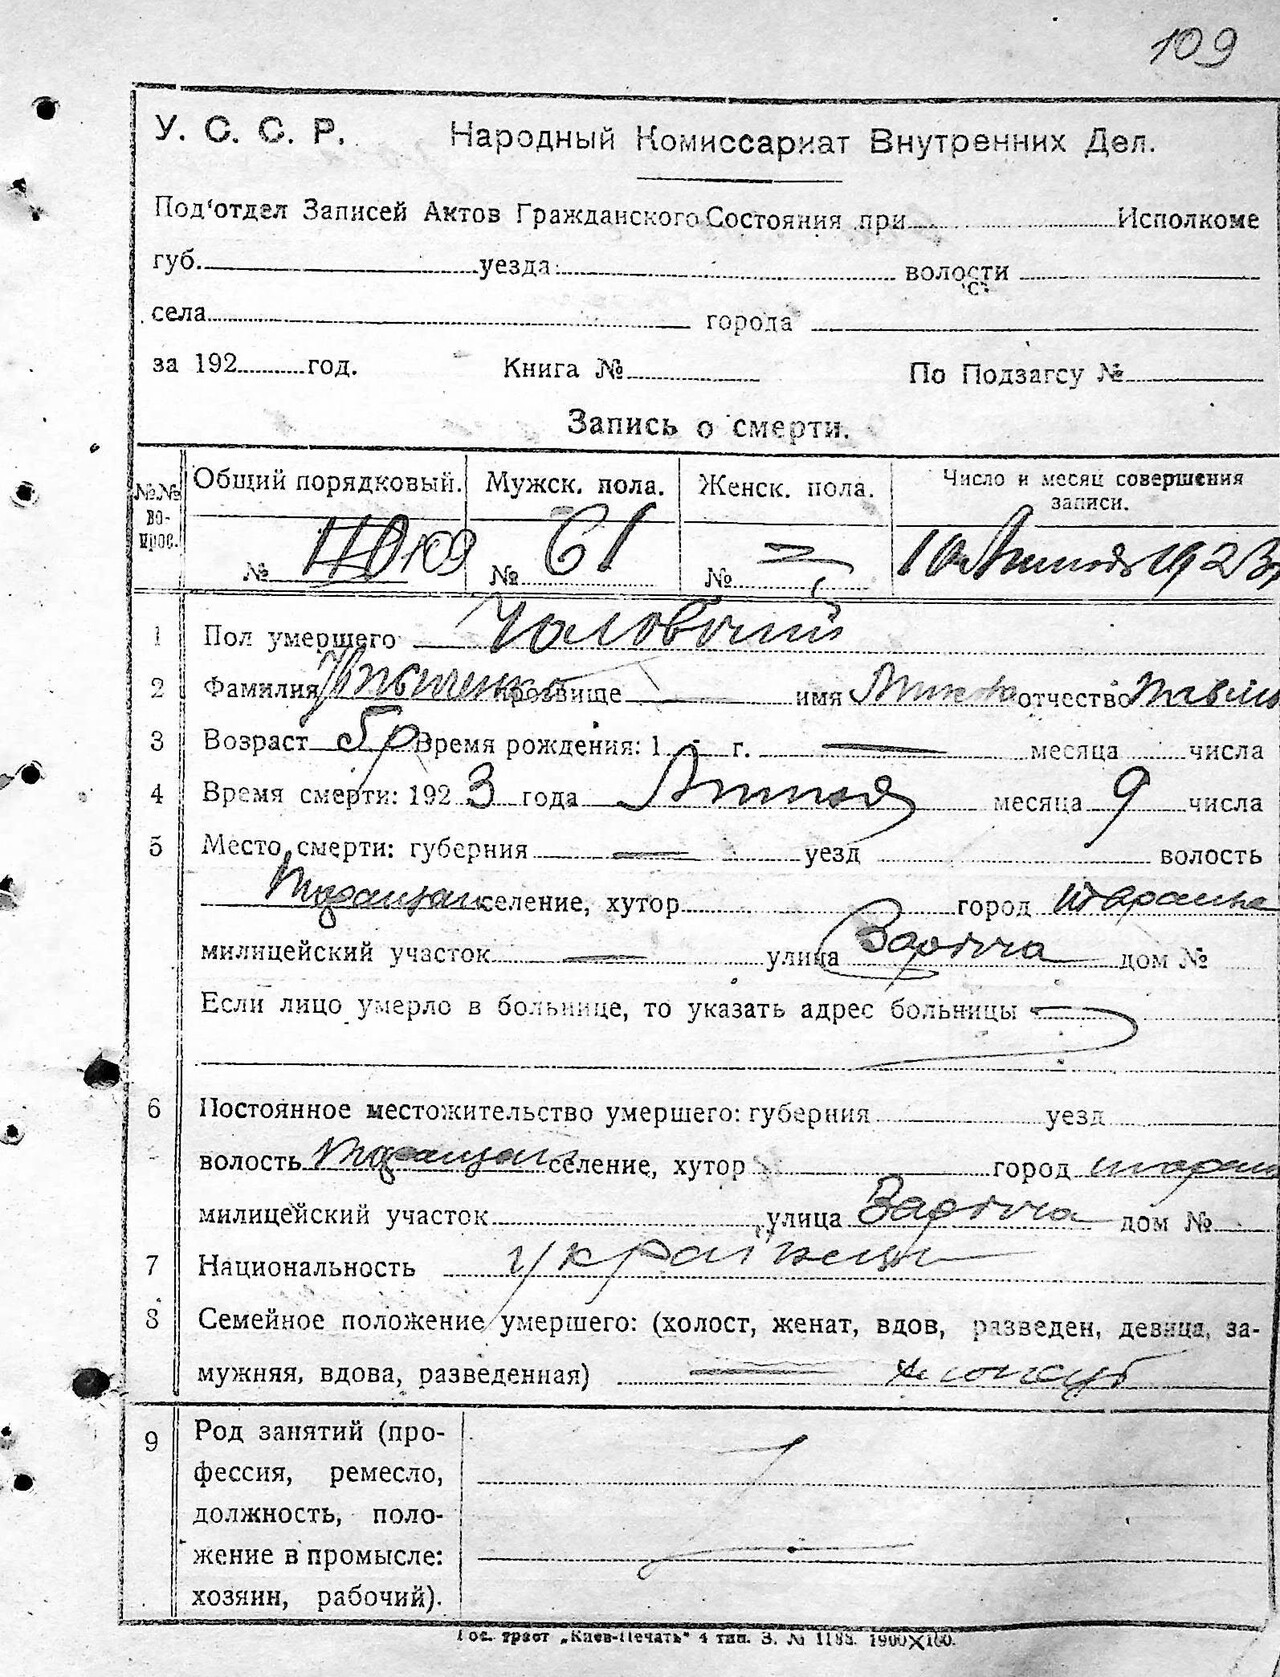 109
У. С. С. Р. Народный Комиссариат Внутренних Дел.
Под'отдел Записей Актов Гражданского Состояния при Исполкоме
губ. уезда волости
села города
за 192 год. Книга № По Подзагсу №
Запись о смерти.
№№ вопрос. Общий порядковый. Мужск. пола. Женск. пола. Число и месяц совершения записи.
№ 110 109 № 61 № — 10 Липня 1923 р
1 Пол умершего Чоловочий
2 Фамилия прозвище имя отчество
3 Возраст 5 р Время рождения: 1 г. — месяца числа
4 Время смерти: 1923 года Липня месяца 9 числа
5 Место смерти: губерния — уезд волость
Таращан селение, хутор город
милицейский участок — улица дом №
Если лицо умерло в больнице, то указать адрес больницы —
6 Постоянное местожительство умершего: губерния уезд
волость Таращан селение, хутор город
милицейский участок улица дом №
7 Национальность Українець
8 Семейное положение умершего: (холост, женат, вдов, разведен, девица, за-
мужняя, вдова, разведенная) —
9 Род занятий (про-
фессия, ремесло,
должность, поло-
жение в промысле:
хозяин, рабочий).
Гос. трест „Киев-Печать" 4 тип. З. № 1188. 1900×100.